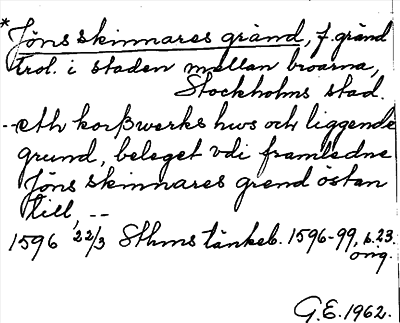 * Jöns skinnares gränd, f. gränd
trol. i staden mellan broarna,
Stockholms stad.
--eth korßwerks hws och liggende
grund, beleget vdi framledne
Jöns skinnares grend östan
till, --
1596 22/3 Sthms tänkeb. 1596-99, s. 23.
orig.
G.E. 1962.